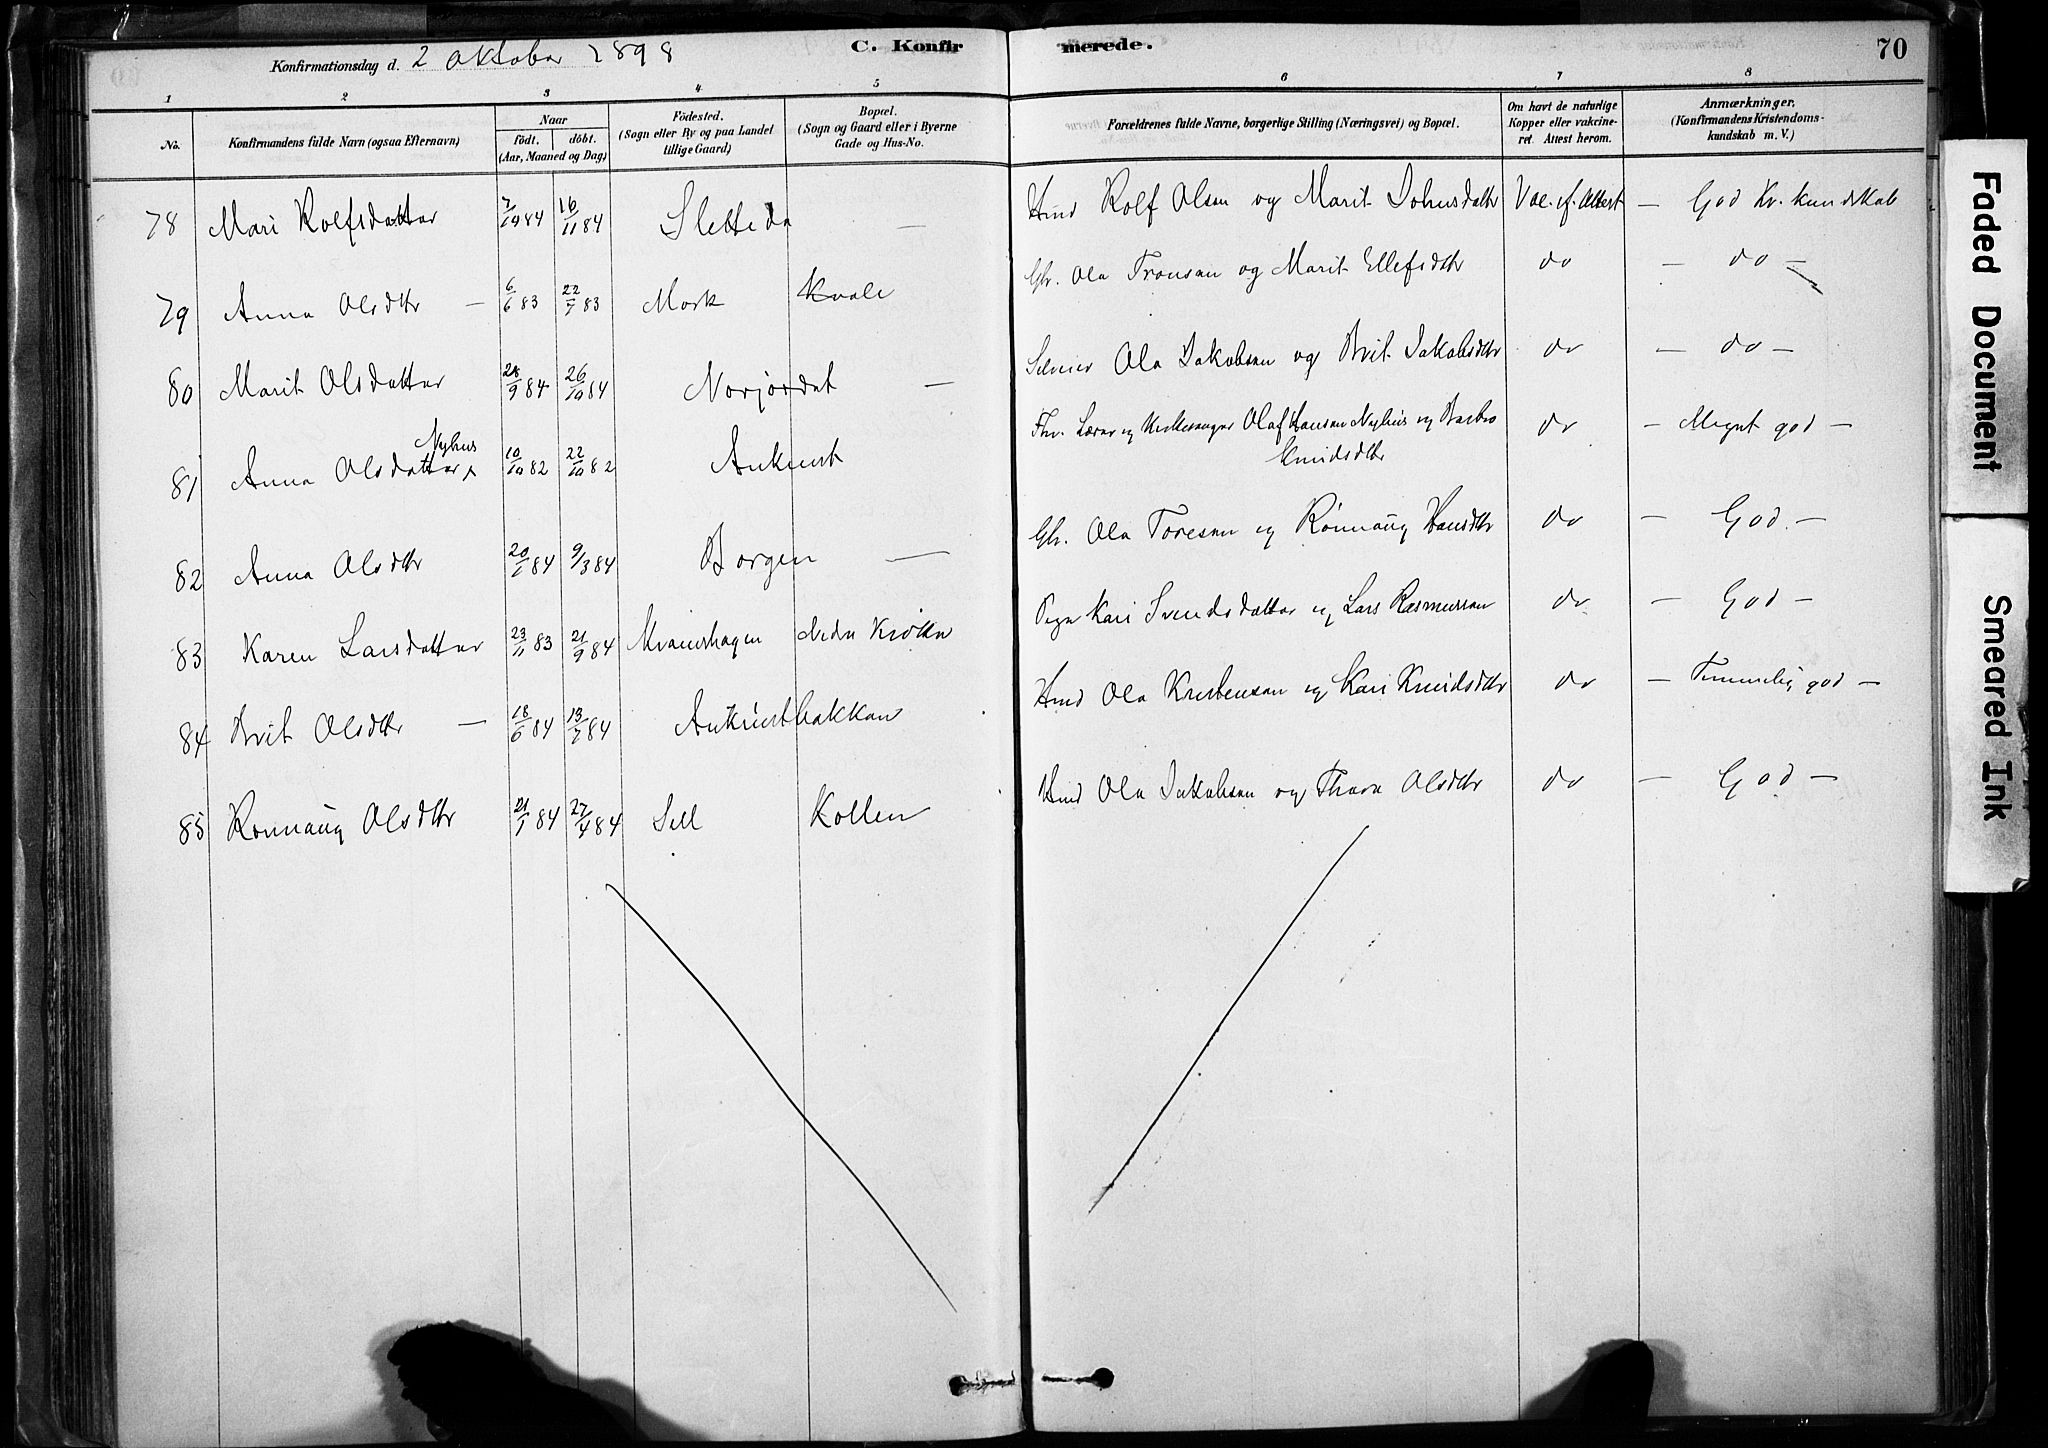 Konfirmationsdag d. 2 Oktober 1898
C. Konfirmerede.
70
1 2 3 4 5 6 7 8
No.
Konfirmandens fulde Navn (ogsaa Efternavn)
Naar
födt. döbt.
(Aar, Maaned og Dag)
Födested.
(Sogn eller By og paa Landet
tillige Gaard)
Bopæl.
(Sogn og Gaard eller i Byerne
Gade og Hus-No.
Forældrenes fulde Navne, borgerlige Stilling (Næringsvei) og Bopæl.
Om havt de naturlige
Kopper eller vakcine-
ret. Attest herom.
Anmærkninger.
(Konfirmandens Kristendoms-
kundskab m. V.)
78 Mari Rolfsdatter 7/10 84 16/11 84 Sletteda — Hmd Rolf Olsen og Marit Johnsdatter Vac. if. Attest — God Kr. kundskab
79 Anna Olsdtr — 6/6 83 22/7 83 Mork Kvale Gbr. Ola Tronsen og Marit Ellefsdtr do — do —
80 Marit Olsdatter 28/9 84 26/10 84 Norjordet — Selveier Ola Jakobsen og Brit Jakobsdtr do — do —
81 Anna Olsdatter Nyhus 10/10 82 22/10 82 Ankerst Fhv. Lærer og Kirkesanger Olaf Hansen Nyhus og Barbro do — Meget god —
Knudsdtr
82 Anna Olsdtr 20/1 84 9/3 84 Borgen — Gbr. Ola Toresen og Rönnaug Hansdtr do — God. —
83 Karen Larsdatter 23/11 83 21/9 84 Kvarnhagen Nedre Kröken Pige Kari Svendsdatter og Lars Rasmussen do — God —
84 Brit Olsdtr — 18/6 84 13/7 84 Ankerstbakken Hmd Ola Kristensen og Kari Knudsdtr do — Temmelig god —
85 Ronnaug Olsdtr 21/1 84 27/4 84 Sell Kollen Hmd Ola Jakobsen og Thora Olsdtr do — God —
Faded Document
Smeared Ink